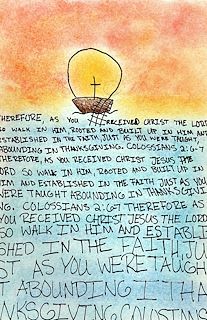 THEREFORE, AS YOU RECEIVED CHRIST THE LORD
SO WALK IN HIM, ROOTED AND BUILT UP IN HIM AND
ESTABLISHED IN THE FAITH, JUST AS YOU WERE TAUGHT,
ABOUNDING IN THANKSGIVING. COLOSSIANS 2:6-7
THEREFORE, AS YOU RECEIVED CHRIST JESUS THE
LORD SO WALK IN HIM, ROOTED AND BUILT UP IN
HIM AND ESTABLISHED IN THE FAITH JUST AS YOU
WERE TAUGHT ABOUNDING IN THANKSGIVI
NG. COLOSSIANS 2:6-7 THEREFORE AS
YOU RECEIVED CHRIST JESUS THE LORD
SO WALK IN HIM AND ESTABLI
SHED IN THE FAITH, JU
ST AS YOU WERE TAUGH
ABOUNDING I THA
NKSGIVING COLOSSIANS